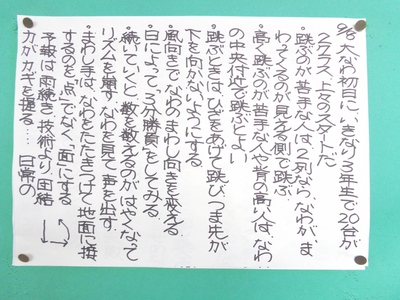 9/6 大なわ初日に、いきなり3年生で20台が
2クラス、上々のスタートだ
・跳ぶのが苦手な人は、2列なら、なわが、ま
わってくるのが見える側で跳ぶ
・高く跳ぶのが苦手な人や背の高い人は、なわ
の中央付近で跳ぶとよい
・跳ぶときは、ひざをあげて跳び、つま先が
下を向かないようにする
・風向きで、なわのまわし向きを変える
・日によって、3分勝負をしてみる
・続いていくと、数を数えるのがはやくなって
リズムを崩す、なわを見て、声を出す
・まわし手は、なわをたたきつけて地面に接
するのを「点」でなく、「面」にする
予報は雨続き、技術より、団結
力がカギを握る… 日常の